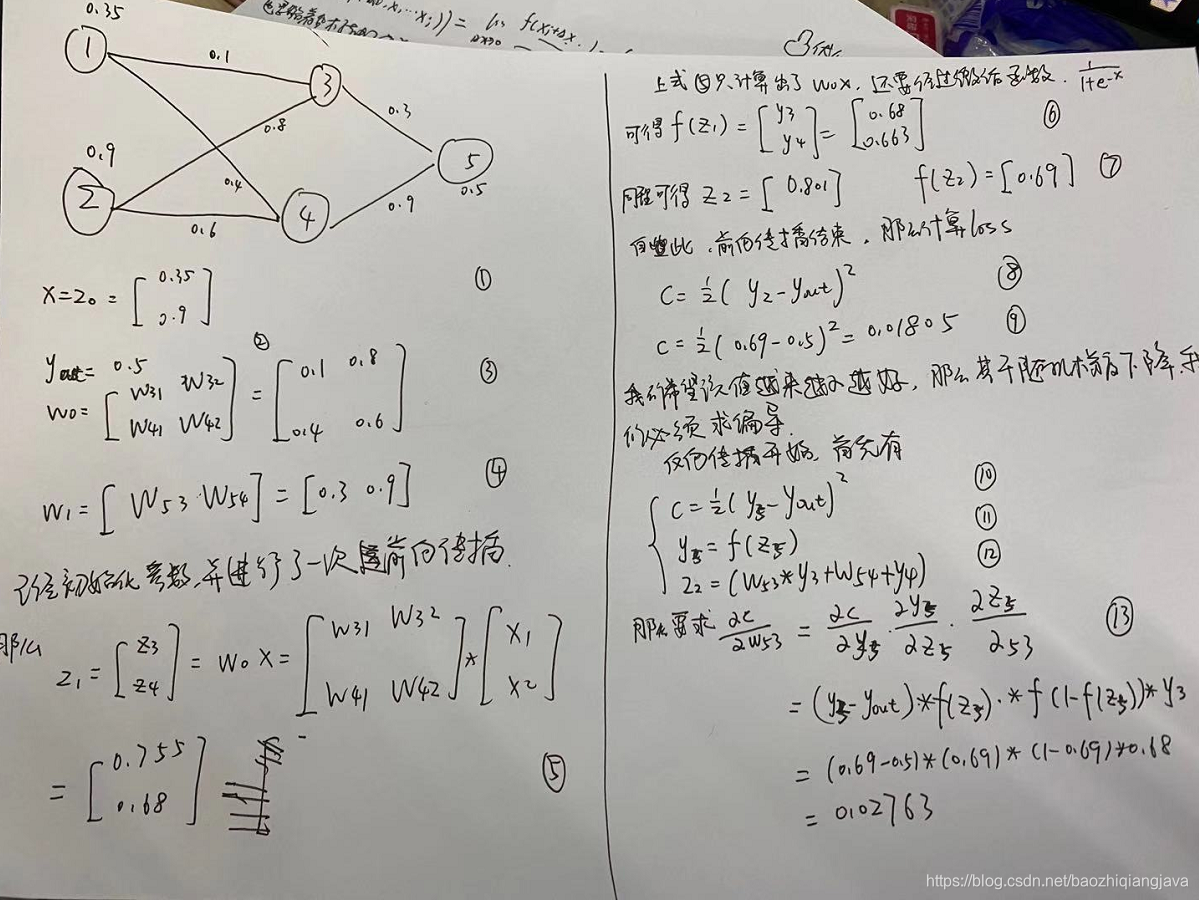 0.35
1
0.1
3
0.3
0.8
0.9
2
0.4
5
0.5
0.6
4
0.9
x=z₀ = [0.35
0.9] ①
yout= 0.5 ②
w0= [W31 W32
W41 W42] = [0.1 0.8
0.4 0.6] ③
w1= [W53 W54] = [0.3 0.9] ④
已经初始化参数,并进行了一次前向传播.
那么
z1 = [z3
z4] = w0 X = [W31 W32
W41 W42] * [x1
x2]
= [0.755
0.68] ⑤
上式⑤只计算出了w0x, 还要经过激活函数. 1/(1+e-x)
可得 f(z1) = [y3
y4] = [0.68
0.663] ⑥
同理可得 z2 = [0.801] f(z2) = [0.69] ⑦
自此, 前向传播结束, 那么计算loss
C= ½( y2-yout)² ⑧
C= ½(0.69-0.5)² = 0.01805 ⑨
我们希望该值越来越小越好, 那么基于随机梯度下降,我
们必须求偏导.
反向传播开始, 首先有
C= ½( y5-yout)² ⑩
y5 = f(z5) ⑪
z2 = (W53*y3+W54+y4) ⑫
那么要求 ∂C/∂W53 = ∂C/∂y5 · ∂y5/∂z5 · ∂z5/∂53 ⑬
= (y5-yout)*f(z5)·*f(1-f(z5))*y3
= (0.69-0.5)*(0.69)*(1-0.69)*0.68
= 0.02763
https://blog.csdn.net/baozhiqiangjava